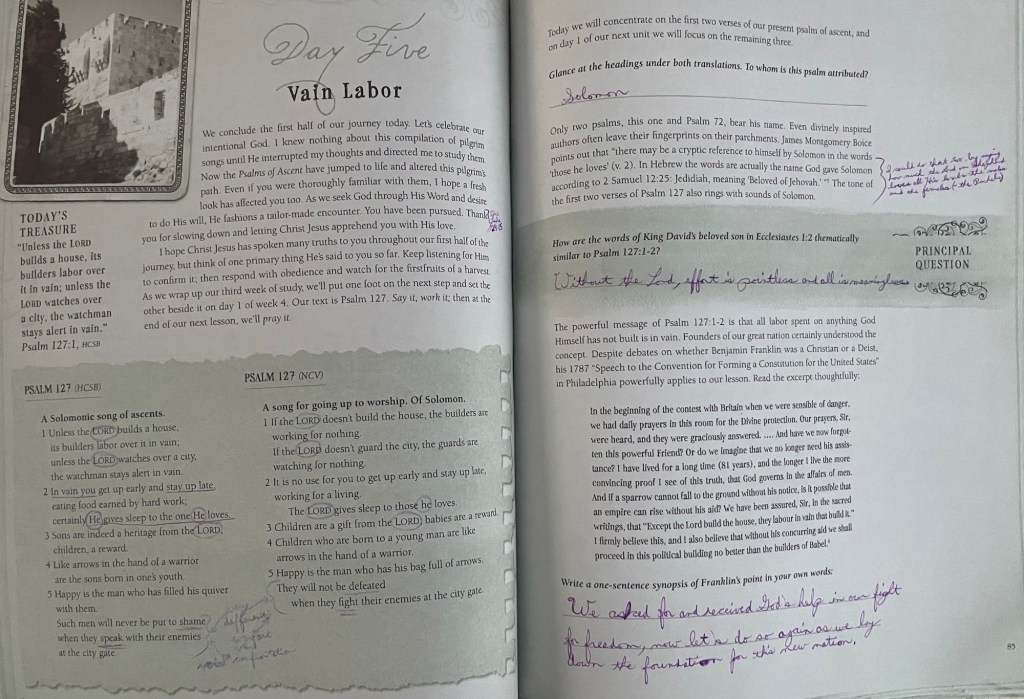 Day Five
Vain Labor
We conclude the first half of our journey today. Let's celebrate our
intentional God. I knew nothing about this compilation of pilgrim
songs until He interrupted my thoughts and directed me to study them.
Now the Psalms of Ascent have jumped to life and altered this pilgrim's
path. Even if you were thoroughly familiar with them, I hope a fresh
look has affected you too. As we seek God through His Word and desire
to do His will, He fashions a tailor-made encounter. You have been pursued. Thank
you for slowing down and letting Christ Jesus apprehend you with His love.
I hope Christ Jesus has spoken many truths to you throughout our first half of the
journey, but think of one primary thing He's said to you so far. Keep listening for Him
to confirm it; then respond with obedience and watch for the firstfruits of a harvest.
As we wrap up our third week of study, we'll put one foot on the next step and set the
other beside it on day 1 of week 4. Our text is Psalm 127. Say it, work it; then at the
end of our next lesson, we'll pray it.
TODAY'S
TREASURE
"Unless the LORD
builds a house, its
builders labor over
it in vain; unless the
LORD watches over
a city, the watchman
stays alert in vain."
Psalm 127:1, HCSB
PSALM 127 (HCSB)
A Solomonic song of ascents.
1 Unless the LORD builds a house,
its builders labor over it in vain;
unless the LORD watches over a city,
the watchman stays alert in vain.
2 In vain you get up early and stay up late,
eating food earned by hard work;
certainly He gives sleep to the one He loves.
3 Sons are indeed a heritage from the LORD,
children, a reward.
4 Like arrows in the hand of a warrior
are the sons born in one's youth.
5 Happy is the man who has filled his quiver
with them.
Such men will never be put to shame
when they speak with their enemies
at the city gate.
PSALM 127 (NCV)
A song for going up to worship. Of Solomon.
1 If the LORD doesn't build the house, the builders are
working for nothing.
If the LORD doesn't guard the city, the guards are
watching for nothing.
2 It is no use for you to get up early and stay up late,
working for a living.
The LORD gives sleep to those he loves.
3 Children are a gift from the LORD; babies are a reward.
4 Children who are born to a young man are like
arrows in the hand of a warrior.
5 Happy is the man who has his bag full of arrows.
They will not be defeated
when they fight their enemies at the city gate.
Today we will concentrate on the first two verses of our present psalm of ascent, and
on day 1 of our next unit we will focus on the remaining three.
Glance at the headings under both translations. To whom is this psalm attributed?
Solomon
Only two psalms, this one and Psalm 72, bear his name. Even divinely inspired
authors often leave their fingerprints on their parchments. James Montgomery Boice
points out that "there may be a cryptic reference to himself by Solomon in the words
'those he loves' (v. 2). In Hebrew the words are actually the name God gave Solomon
according to 2 Samuel 12:25: Jedidiah, meaning 'Beloved of Jehovah.' " The tone of
the first two verses of Psalm 127 also rings with sounds of Solomon.
How are the words of King David's beloved son in Ecclesiastes 1:2 thematically
similar to Psalm 127:1-2?
PRINCIPAL
QUESTION
Without the Lord, effort is pointless and all is meaningless
The powerful message of Psalm 127:1-2 is that all labor spent on anything God
Himself has not built is in vain. Founders of our great nation certainly understood the
concept. Despite debates on whether Benjamin Franklin was a Christian or a Deist,
his 1787 "Speech to the Convention for Forming a Constitution for the United States"
in Philadelphia powerfully applies to our lesson. Read the excerpt thoughtfully:
In the beginning of the contest with Britain when we were sensible of danger,
we had daily prayers in this room for the Divine protection. Our prayers, Sir,
were heard, and they were graciously answered. .... And have we now forgot-
ten this powerful Friend? Or do we imagine that we no longer need his assis-
tance? I have lived for a long time (81 years), and the longer I live the more
convincing proof I see of this truth, that God governs in the affairs of men.
And if a sparrow cannot fall to the ground without his notice, is it possible that
an empire can rise without his aid? We have been assured, Sir, in the sacred
writings, that "Except the Lord build the house, they labour in vain that build it."
I firmly believe this, and I also believe that without his concurring aid we shall
proceed in this political building no better than the builders of Babel.
Write a one-sentence synopsis of Franklin's point in your own words:
We asked for and received God's help in our fight
for freedom, now let's do so again as we lay
down the foundation for this new nation.
85